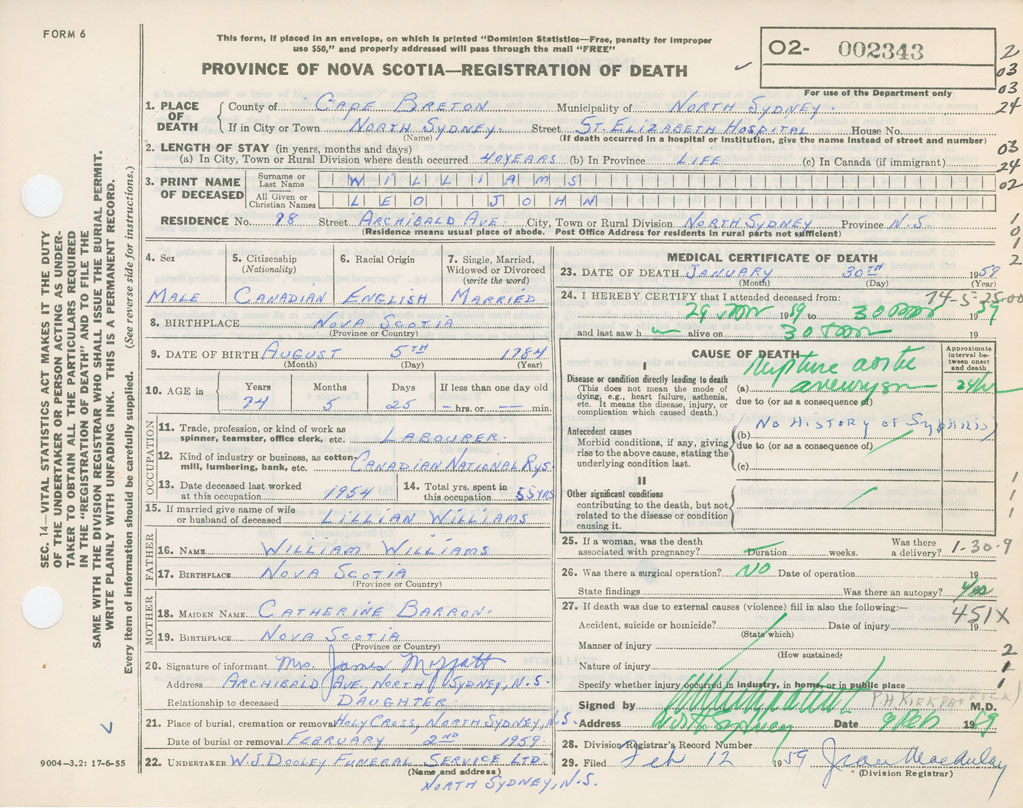 FORM 6
This form, if placed in an envelope, on which is printed "Dominion Statistics—Free, penalty for improper
use $50," and properly addressed will pass through the mail "FREE"
PROVINCE OF NOVA SCOTIA—REGISTRATION OF DEATH
O2- 002343
For use of the Department only
2
03
03
24
03
24
02
1
0
1
2
1. PLACE OF DEATH County of CAPE BRETON Municipality of NORTH SYDNEY.
If in City or Town NORTH SYDNEY. Street ST ELIZABETH HOSPITAL House No.
(Name) (If death occurred in a hospital or institution, give the name instead of street and number)
2. LENGTH OF STAY (in years, months and days)
(a) In City, Town or Rural Division where death occurred 40 YEARS (b) In Province LIFE (c) In Canada (if immigrant)
3. PRINT NAME OF DECEASED
Surname or Last Name WILLIAMS
All Given or Christian Names LEO JOHN
RESIDENCE No. 98 Street ARCHIBALD AVE. City, Town or Rural Division NORTH SYDNEY Province N.S.
(Residence means usual place of abode. Post Office Address for residents in rural parts not sufficient)
4. Sex 5. Citizenship (Nationality) 6. Racial Origin 7. Single, Married, Widowed or Divorced (write the word)
MALE CANADIAN ENGLISH MARRIED
8. BIRTHPLACE NOVA SCOTIA
(Province or Country)
9. DATE OF BIRTH AUGUST 5TH 1784
(Month) (Day) (Year)
10. AGE in Years Months Days If less than one day old
74 5 25 — hrs. or — min.
OCCUPATION
11. Trade, profession, or kind of work as spinner, teamster, office clerk, etc. LABOURER.
12. Kind of industry or business, as cotton-mill, lumbering, bank, etc. CANADIAN NATIONAL RYS.
13. Date deceased last worked at this occupation 1954 14. Total yrs. spent in this occupation 55 YRS
15. If married give name of wife or husband of deceased LILLIAN WILLIAMS
FATHER
16. NAME WILLIAM WILLIAMS
17. BIRTHPLACE NOVA SCOTIA
(Province or Country)
MOTHER
18. MAIDEN NAME CATHERINE BARRON.
19. BIRTHPLACE NOVA SCOTIA
(Province or Country)
20. Signature of informant Mrs. James Moffatt
Address ARCHIBALD AVE. NORTH SYDNEY, N.S.
Relationship to deceased DAUGHTER
21. Place of burial, cremation or removal HOLY CROSS, NORTH SYDNEY, N.S.
Date of burial or removal FEBRUARY 2ND 1959.
22. UNDERTAKER W.J. DOOLEY FUNERAL SERVICE LTD.
(Name and address)
NORTH SYDNEY, N.S.
MEDICAL CERTIFICATE OF DEATH
23. DATE OF DEATH JANUARY 30TH 1958
(Month) (Day) (Year)
74-5-25-00
24. I HEREBY CERTIFY that I attended deceased from:
29 1959 to 30 1959
and last saw h alive on 30 19
CAUSE OF DEATH
Approximate interval between onset and death
I
Disease or condition directly leading to death
(This does not mean the mode of dying, e.g., heart failure, asthenia, etc. It means the disease, injury, or complication which caused death.)
(a) Rupture aortic aneurysm
due to (or as a consequence of)
Antecedent causes
Morbid conditions, if any, giving rise to the above cause, stating the underlying condition last.
(b) (NO HISTORY OF SYPHILIS)
due to (or as a consequence of)
(c)
II
Other significant conditions
contributing to the death, but not related to the disease or condition causing it.
1
1
1
25. If a woman, was the death associated with pregnancy? Duration weeks. Was there a delivery? 1-30-9
26. Was there a surgical operation? NO Date of operation 19
State findings Was there an autopsy? Yes
27. If death was due to external causes (violence) fill in also the following:—
451X
Accident, suicide or homicide? Date of injury 19
(State which)
Manner of injury 2
(How sustained)
Nature of injury 1
Specify whether injury occurred in industry, in home, or in public place 1
Signed by (P.H KIRKPATRICK) M.D.
Address North Sydney Date 9 Feb 1959
28. Division Registrar's Record Number
29. Filed Feb 12 1959 Jean Macaulay
(Division Registrar)
SEC. 14—VITAL STATISTICS ACT MAKES IT THE DUTY
OF THE UNDERTAKER OR PERSON ACTING AS UNDER-
TAKER TO OBTAIN ALL THE PARTICULARS REQUIRED
IN THE "REGISTRATION OF DEATH" AND TO FILE THE
SAME WITH THE DIVISION REGISTRAR WHO SHALL ISSUE THE BURIAL PERMIT.
WRITE PLAINLY WITH UNFADING INK. THIS IS A PERMANENT RECORD.
Every item of information should be carefully supplied. (See reverse side for instructions.)
9004—3.2: 17-6-55